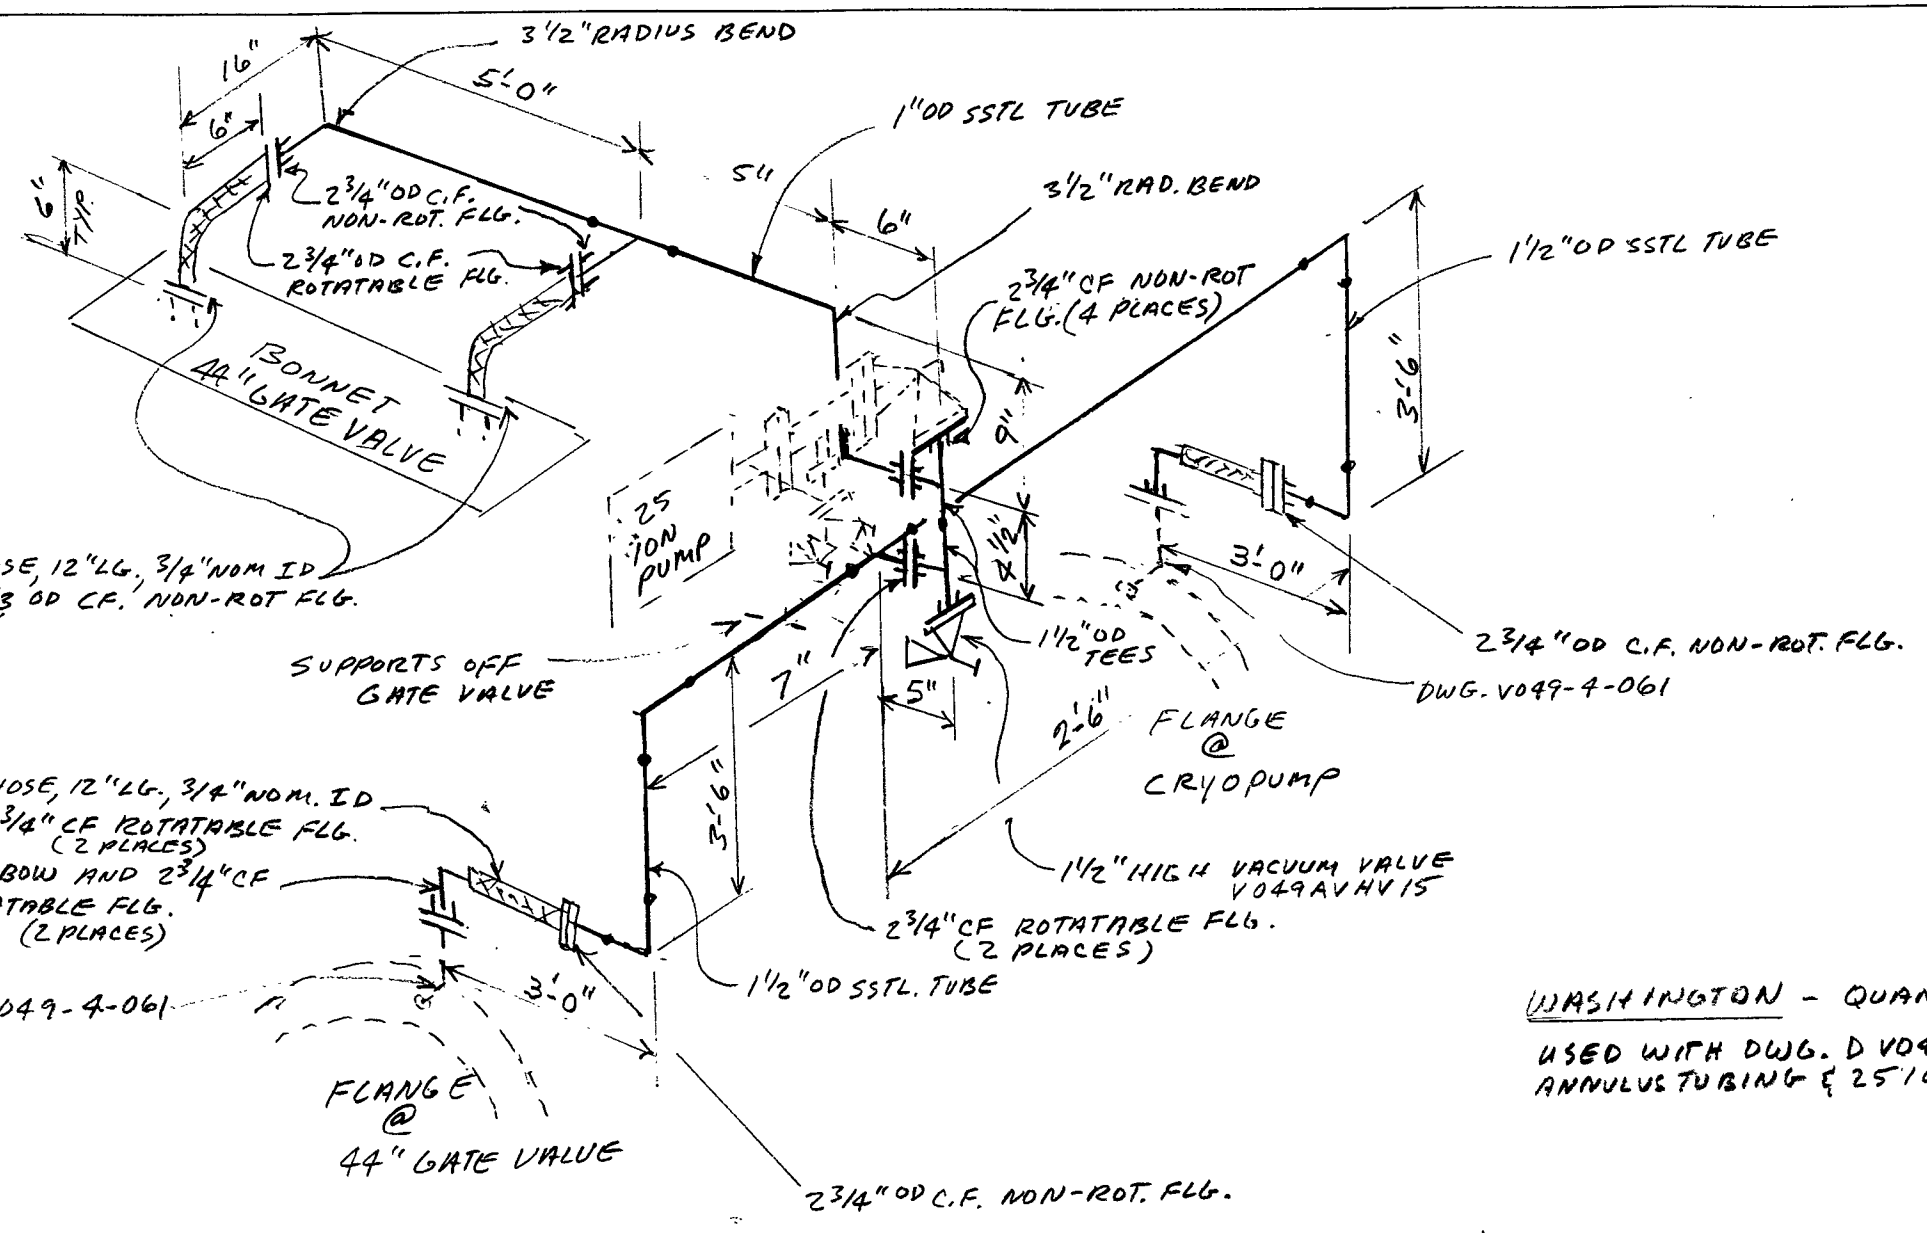 3 1/2" RADIUS BEND
16"
5'-0"
6"
1" OD SSTL TUBE
5"
3 1/2" RAD. BEND
6"
6"
TYP.
2 3/4" OD C.F.
NON-ROT. FLG.
2 3/4" OD C.F.
ROTATABLE FLG.
2 3/4" CF NON-ROT
FLG. (4 PLACES)
1 1/2" OD SSTL TUBE
3'-6"
BONNET
44" GATE VALVE
9"
25
ION
PUMP
4 1/2"
3'-0"
SE, 12" LG., 3/4" NOM ID
OD CF. NON-ROT FLG.
1 1/2" OD
TEES
2 3/4" OD C.F. NON-ROT. FLG.
DWG. V049-4-061
SUPPORTS OFF
GATE VALVE
7"
5"
2'-6"
FLANGE
@
CRYOPUMP
3'-6"
HOSE, 12" LG., 3/4" NOM. ID
3/4" CF ROTATABLE FLG.
(2 PLACES)
BOW AND 2 3/4" CF
TABLE FLG.
(2 PLACES)
1 1/2" HIGH VACUUM VALVE
V049AVHV15
2 3/4" CF ROTATABLE FLG.
(2 PLACES)
1 1/2" OD SSTL. TUBE
049-4-061
3'-0"
FLANGE
@
44" GATE VALVE
2 3/4" OD C.F. NON-ROT. FLG.
WASHINGTON - QUAN
USED WITH DWG. D V04
ANNULUS TUBING & 25